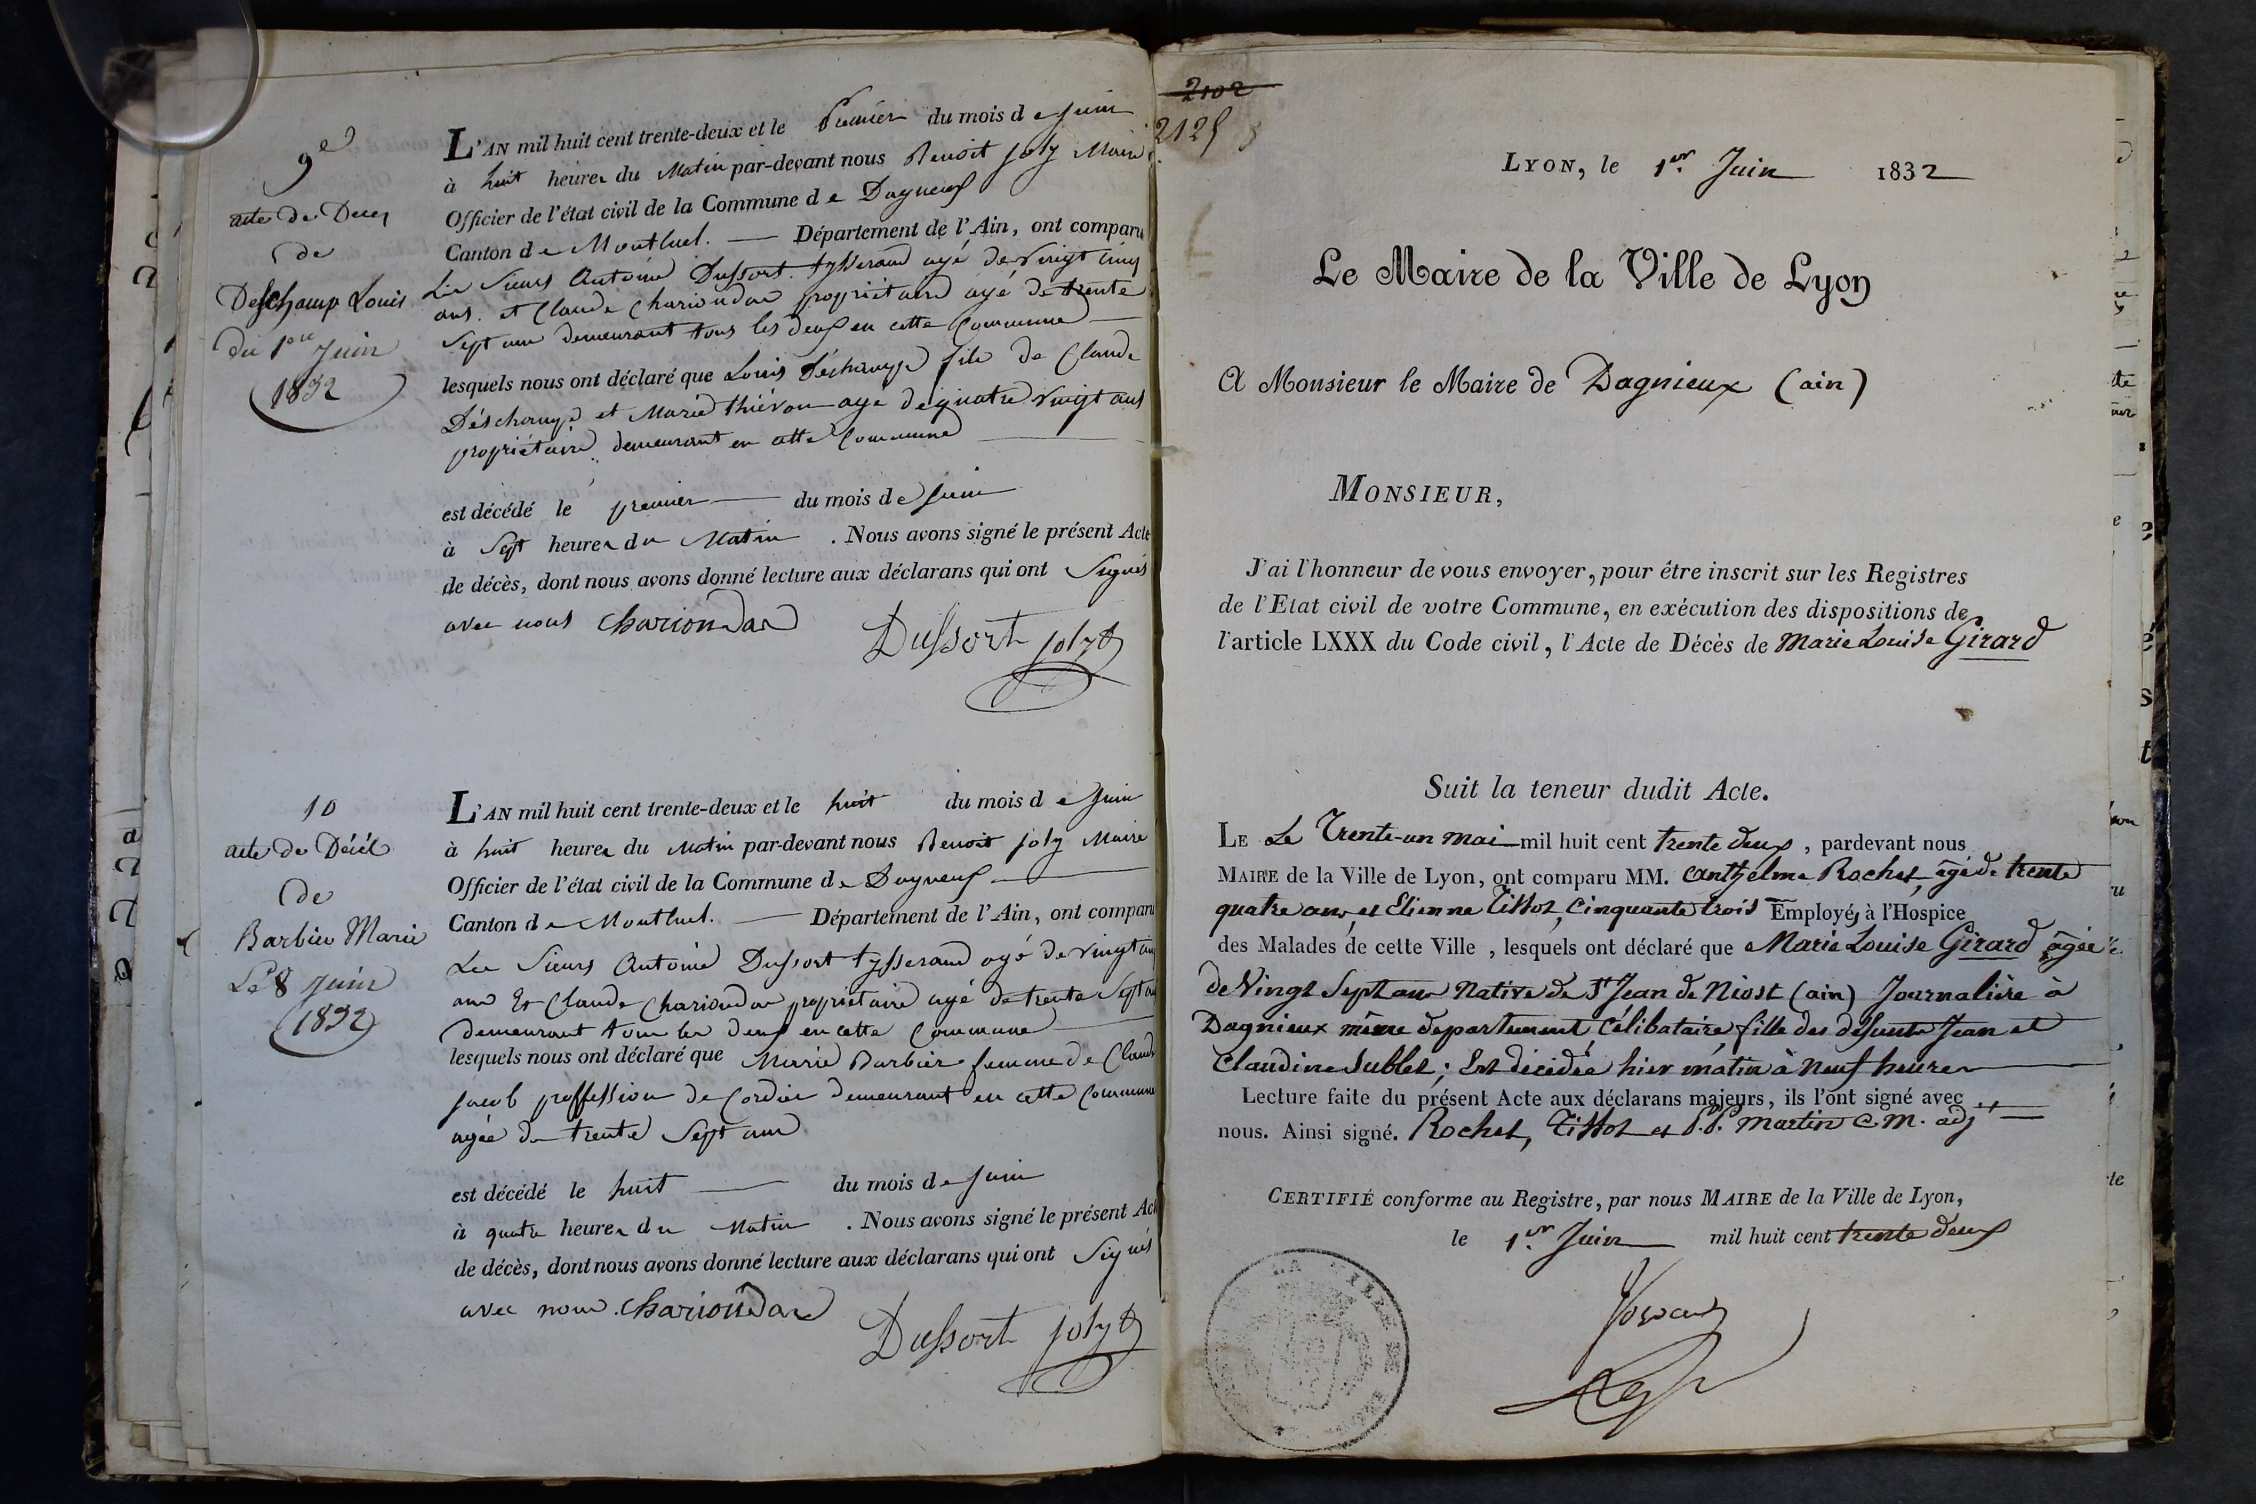 9e
acte de Deces
de
Deschamp Louis
du 1er Juin
1832
L'AN mil huit cent trente-deux et le Premier du mois de Juin
à huit heures du Matin par-devant nous Benoit Joly Maire
Officier de l'état civil de la Commune de Dagneux
Canton de Montluel. Département de l'Ain, ont comparu
Les Sieurs Antoine Dussort tysserand agé de Vingt Cinq
ans. et Claude Chariondar propriétaire agé de trente
Sept ans demeurant tous les deux en cette Commune
lesquels nous ont déclaré que Louis Déschamp fils de Claude
Déschamp et Marie thiévon age de quatre vingt ans
propriétaire demeurant en cette Commune
est décédé le premier du mois de Juin
à Sept heures du Matin. Nous avons signé le présent Acte
de décès, dont nous avons donné lecture aux déclarans qui ont Signés
avec nous Chariondar
Dussort Joly
10
acte de Décés
de
Barbier Marie
Le 8 Juin
1832
L'AN mil huit cent trente-deux et le huit du mois de Juin
à huit heures du Matin par-devant nous Benoit Joly Maire
Officier de l'état civil de la Commune de Dagneux
Canton de Montluel. Département de l'Ain, ont comparu
Les Sieurs Antoine Dussort tysserand agé de vingt cinq
ans Et Claude Chariondar propriétaire agé de trente Sept ans
demeurant tous les deux en cette Commune
lesquels nous ont déclaré que Marie Barbier femme de Claude
Jacob proffession de Cordier demeurant en cette Commune
agée de trente Sept ans
est décédé le huit du mois de Juin
à quatre heures du Matin. Nous avons signé le présent Acte
de décès, dont nous avons donné lecture aux déclarans qui ont Signés
avec nous. Chariondar
Dussort Joly
2102
2125
LYON, le 1er Juin 1832
Le Maire de la Ville de Lyon
A Monsieur le Maire de Dagnieux (ain)
MONSIEUR,
J'ai l'honneur de vous envoyer, pour être inscrit sur les Registres
de l'Etat civil de votre Commune, en exécution des dispositions de
l'article LXXX du Code civil, l'Acte de Décès de Marie Louise Girard
Suit la teneur dudit Acte.
LE Le Trente-un Mai mil huit cent trente deux, pardevant nous
MAIRE de la Ville de Lyon, ont comparu MM. Canthelme Rochet, âgé de trente
quatre ans, et Etienne Tissot, Cinquante trois Employés à l'Hospice
des Malades de cette Ville, lesquels ont déclaré que Marie Louise Girard âgée
de Vingt Sept ans Native de St Jean de Niost (ain) Journalière à
Dagnieux même departement, Célibataire, fille des defunts Jean et
Claudine Sublet; Est décédée hier matin à Neuf heures
Lecture faite du présent Acte aux déclarans majeurs, ils l'ont signé avec
nous. Ainsi signé. Rochet, Tissot et P.P. Martin C.M. adjt
CERTIFIÉ conforme au Registre, par nous MAIRE de la Ville de Lyon,
le 1er Juin mil huit cent trente deux